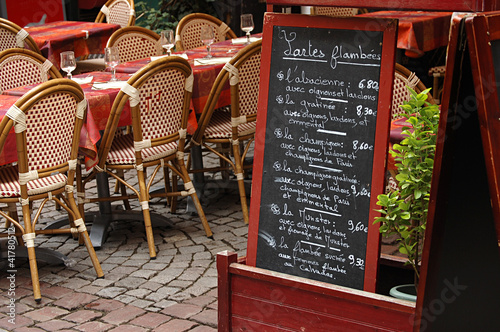 Tartes flambées
l'alsacienne: 6.80
avec oignons et lardons
la gratinée 8,30€
avec oignons, lardons et
emmental
la champignon: 8,30€
avec oignons, lardons et
champignons
la champignon gratinée
avec oignons, lardons
champignons et 9,60
emmental
la Munster 9,60€
avec oignons, lardons
et fromage de Munster
la flambée sucrée
aux pommes flambée 9.30€
au Calvados
41780512